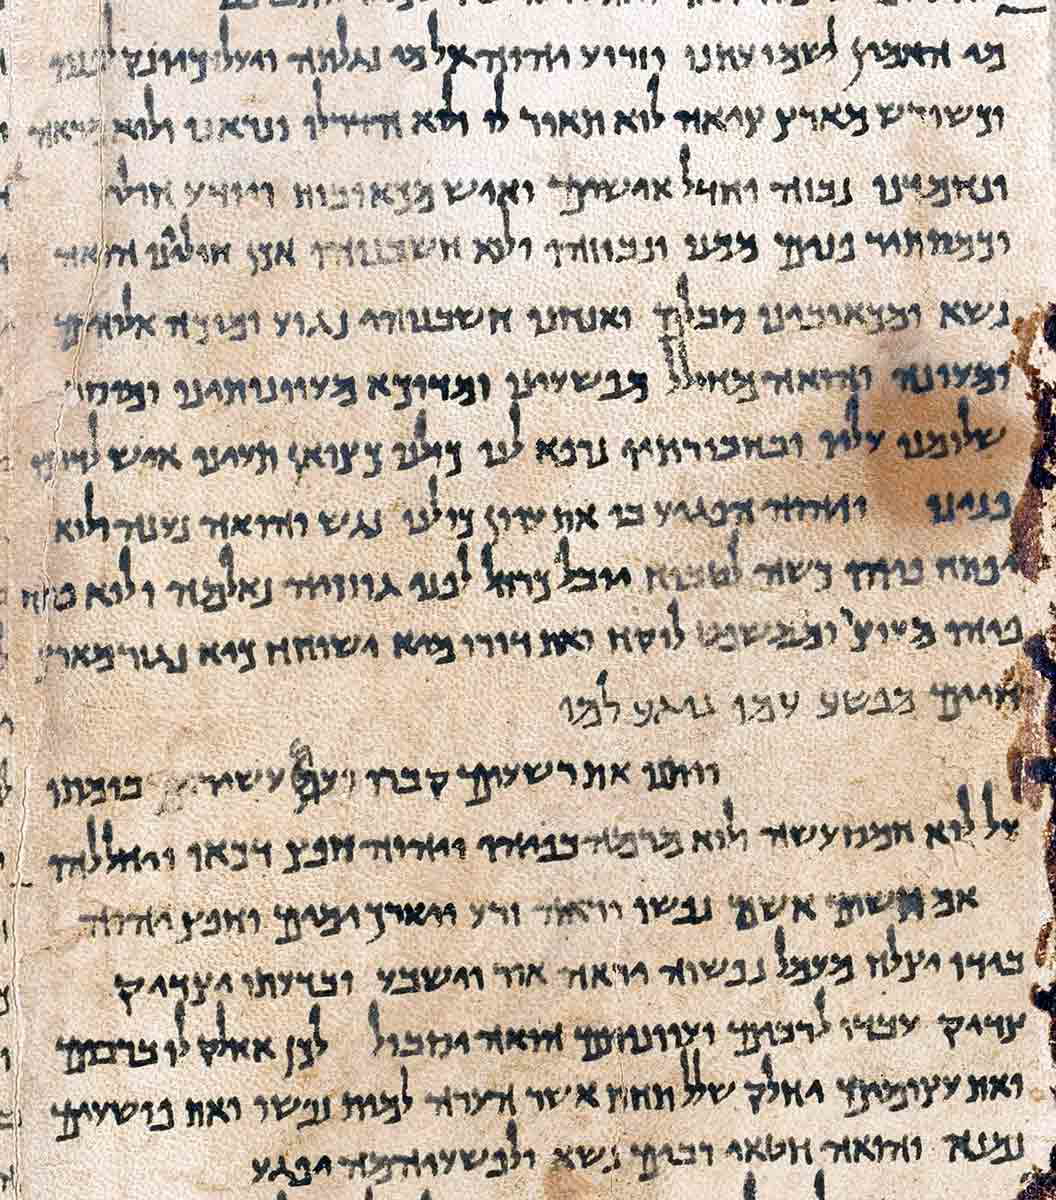 מי האמין לשמועתנו וזרוע יהוה אל מי נגלתה ויעל כיונק לפניו
וכשורש מארץ ציאה לוא תאור לו ולוא הדר לו ונראנו ולוא מראה
ונחמדנו נבזה וחדל אישים ואיש מכאובות ויודע חולי
וכמסתיר פנים ממנו ונבוזהו ולוא חשבנוהו אכן חוליינו הואה
נשא ומכאובינו סבלם ואנחנו חשבנוהו נגוע ומוכה אלוהים
ומעונה והואה מחולל מפשעינו ומדוכא מעוונותינו ומוסר
שלומנו עליו ובחבורתיו נרפא לנו כולנו כצואן תעינו איש לדרכו
פנינו ויהוה הפגיע בו את עוון כולנו נגש והואה נענה ולוא
יפתח פיהו כשה לטבוח יובל כרחל לפני גוזזיה נאלמה ולוא פתח
פיהו מעוצר וממשפט לוקח ואת דורו מיא ישוחח כיא נגזר מארץ
חיים מפשע עמו נוגע למו
ויתנו את רשעים קברו ועם עשירים בומתו
על לוא חמס עשה ולוא מרמה בפיהו ויהוה חפץ דכאו ויחללהו
אם תשים אשם נפשו ויראה זרע ויארך ימים וחפץ יהוה
בידו יצלח מעמל נפשוה יראה אור וישבע ובדעתו יצדיק
צדיק עבדו לרבים ועוונותם הואה יסבול לכן אחלק לו ברבים
ואת עצומים יחלק שלל תחת אשר הערה למות נפשו ואת פושעים
נמנה והואה חטאי רבים נשא ולפשעיהמה יפגע